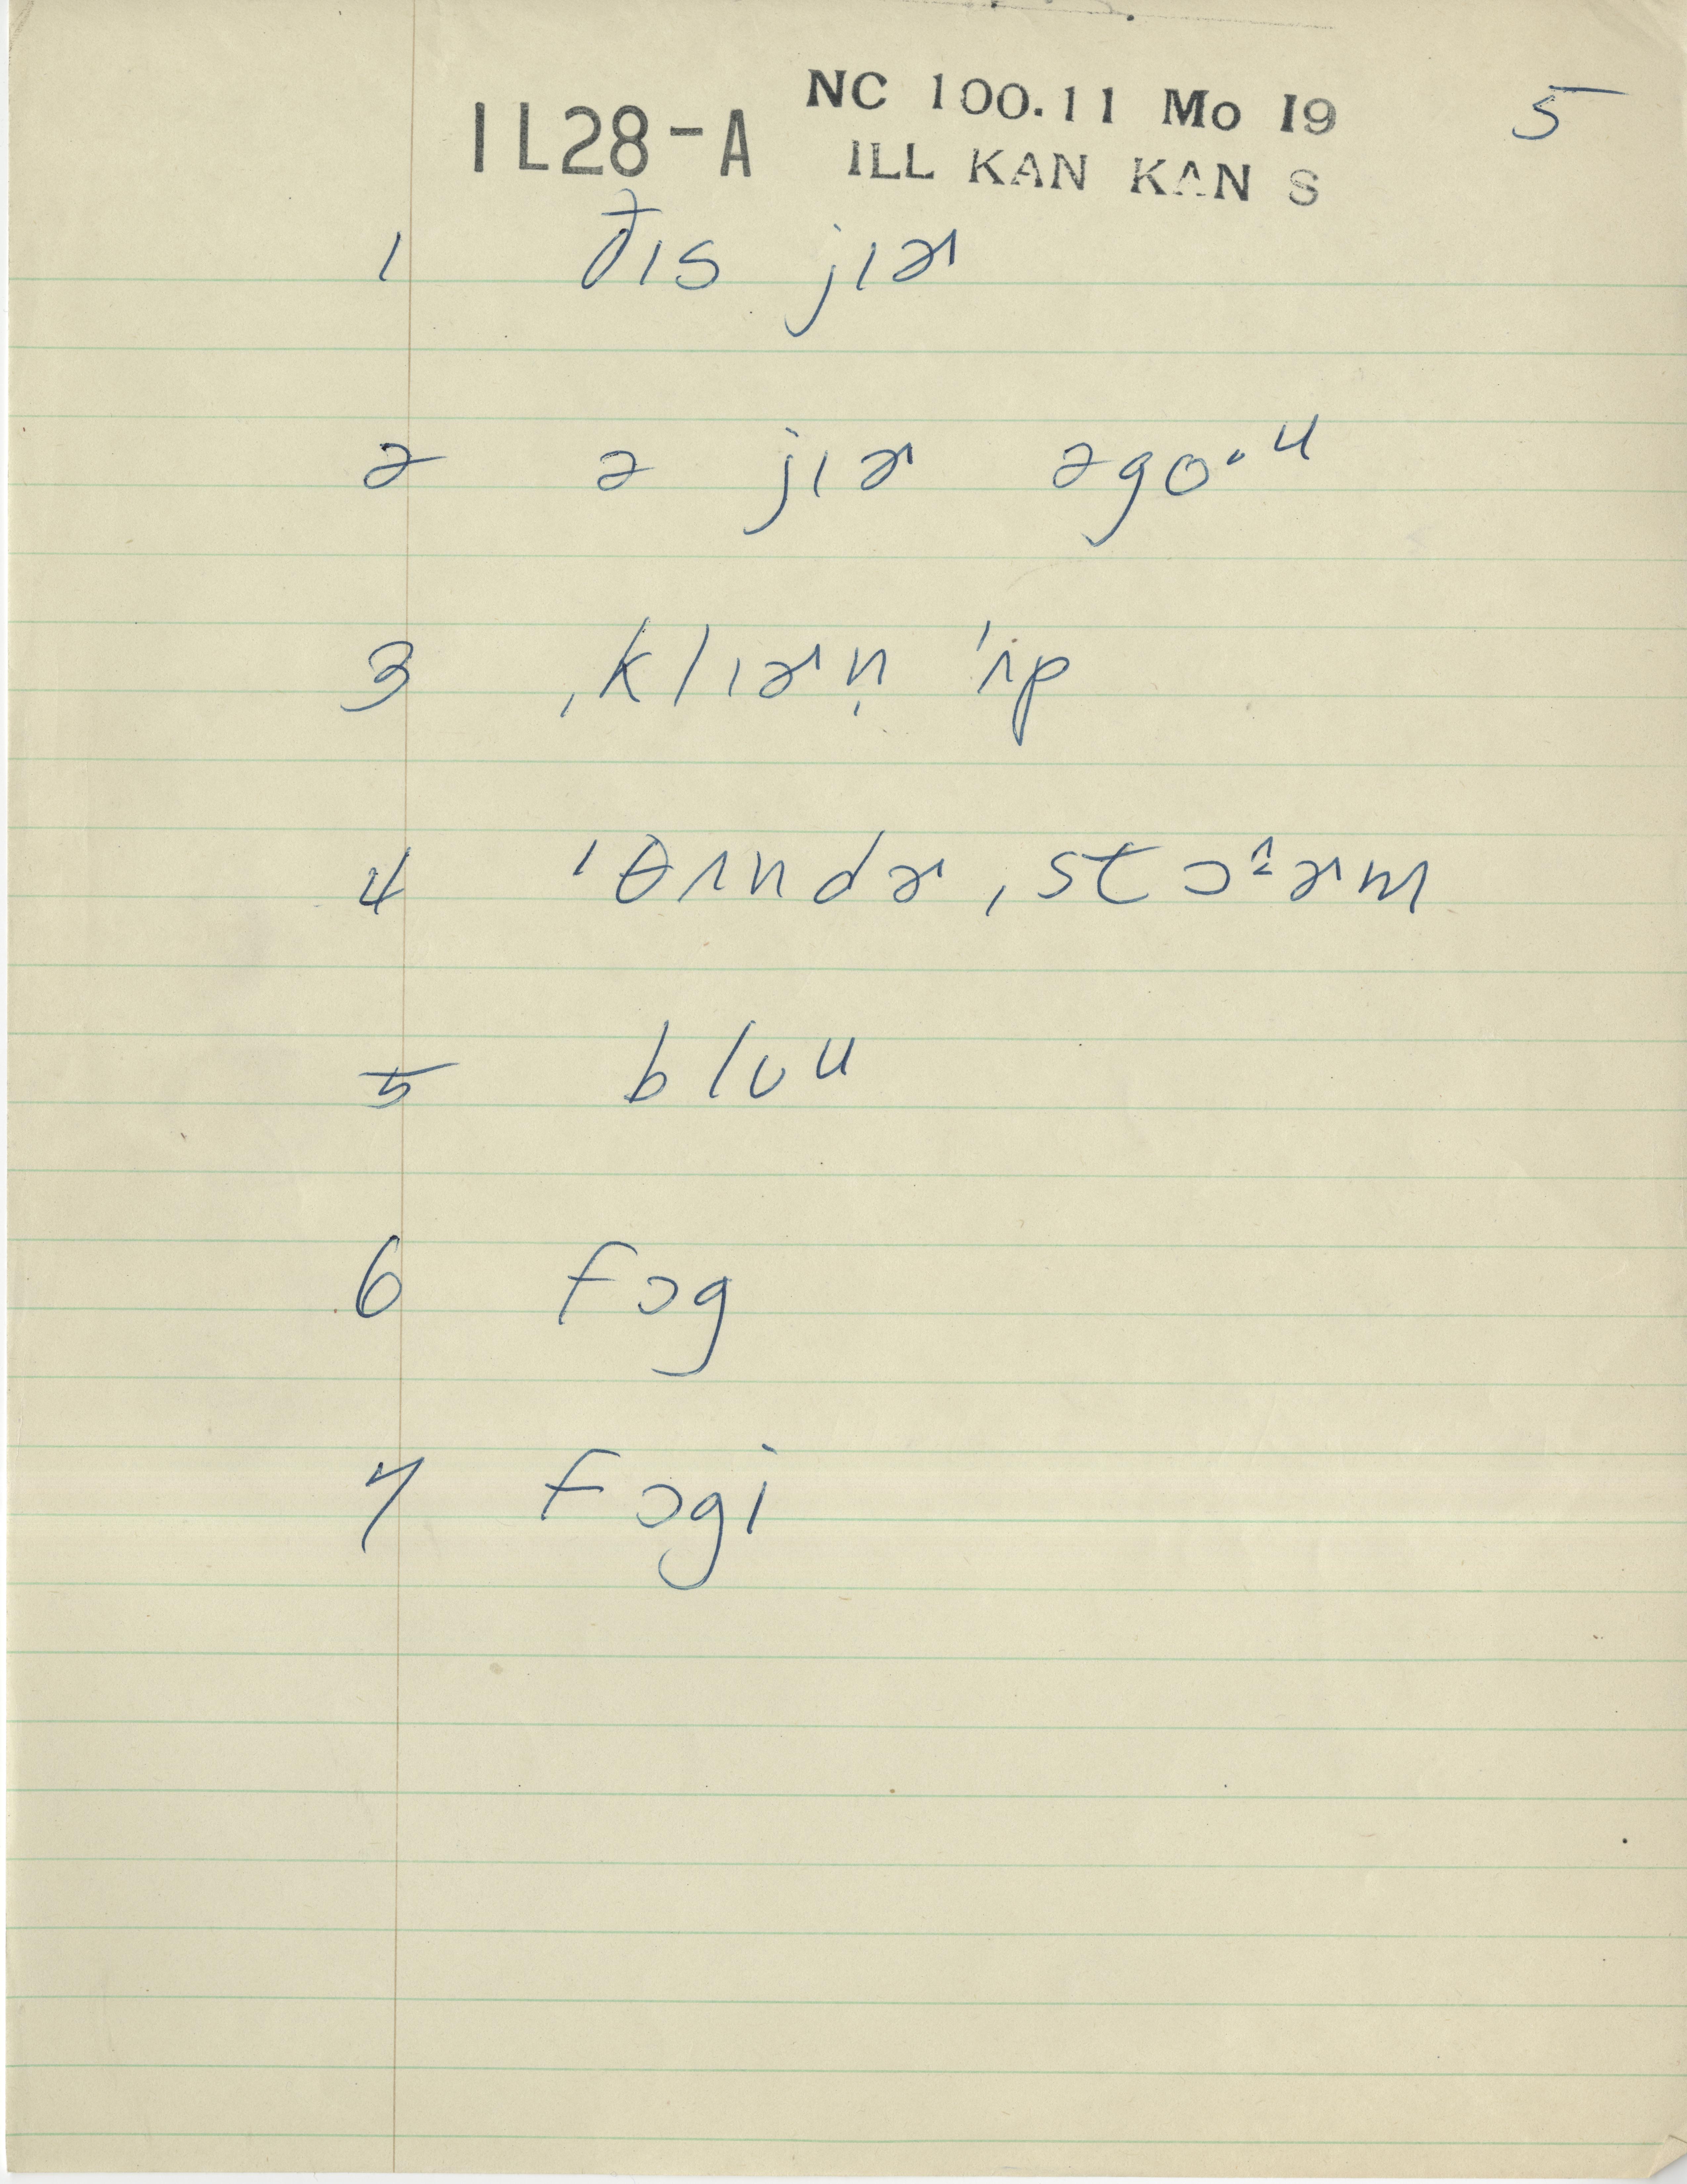 IL28-A NC 100.11 Mo I9 5
ILL KAN KAN S
1 ðɪs jɪɚ
2 ə jɪɚ əgoˑu
3 ˌklɪɚn̩ ˈʌp
4 ˈθʌndɚˌstɔˑ^ɚm
5 blʊu
6 fɔg
7 fɔgi